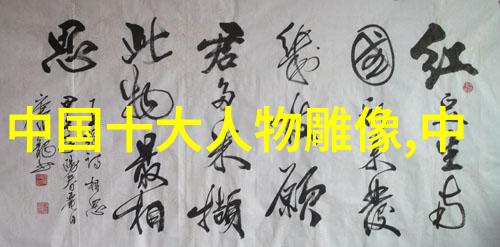 中国十大人物雕像,中
红豆生南
國春来發
幾枝願
君多采擷
此物最相
思